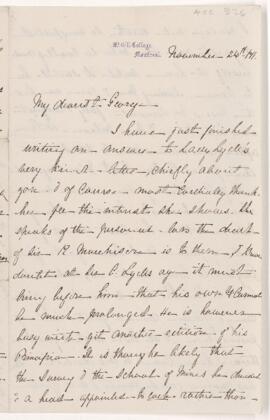 McGill College
Montreal
November 24th
My dearest George
I have just finished
writing an answer to Lady Lyell's
very kind letter, chiefly about
you & of course most cordially thank
her for the interest she shows. She
speaks of the
of Sir R. Murchison is to them. I
at Sir C. Lyell's age it must
bring before him that his own cannot
be much prolonged. He is however
busy with yet another edition of his
Principia. It is thought likely that
the Survey & the School of Mines
a head appointed to each rather than